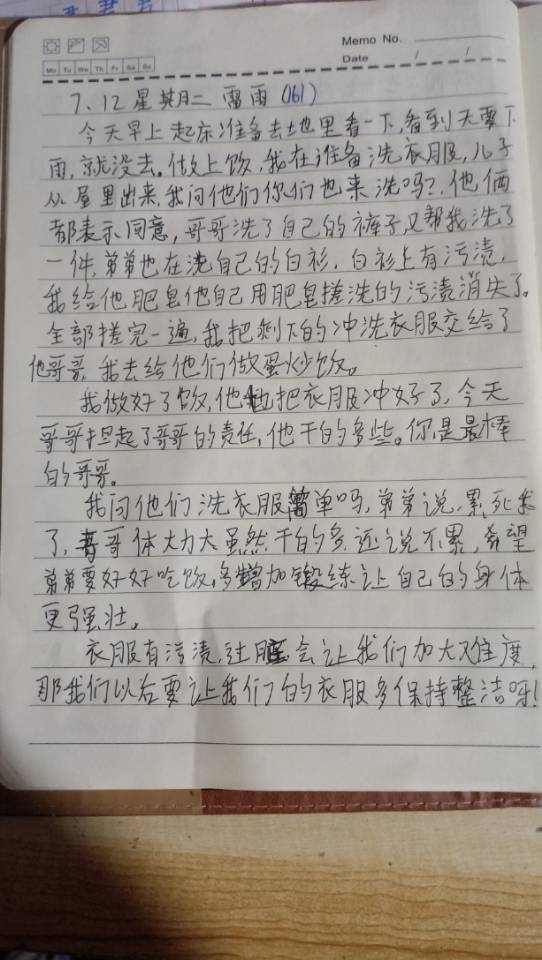 Memo No.
Mo Tu We Th Fr Sa Su
Date / /
7.12 星期二 雷雨 (161)
今天早上起床准备去地里看一下,看到天要下
雨,就没去。做上饭,我在准备洗衣服,儿子
从屋里出来,我问他们你们也来洗吗?他俩
都表示同意,哥哥洗了自己的裤子,又帮我洗了
一件,弟弟也在洗自己的白衫,白衫上有污渍,
我给他肥皂他自己用肥皂搓洗的污渍消失了。
全部搓完一遍,我把剩下的冲洗衣服交给了
他哥哥,我去给他们做蛋炒饭。
我做好了饭,他也把衣服冲好了,今天
哥哥担起了哥哥的责任,他干的多些。你是最棒
的哥哥。
我问他们洗衣服简单吗,弟弟说,累死我
了,哥哥体力大虽然干的多,还说不累,希望
弟弟要好好吃饭,多增加锻练让自己的身体
更强壮。
衣服有污渍,过脏会让我们加大难度,
那我们以后要让我们的衣服多保持整洁呀!